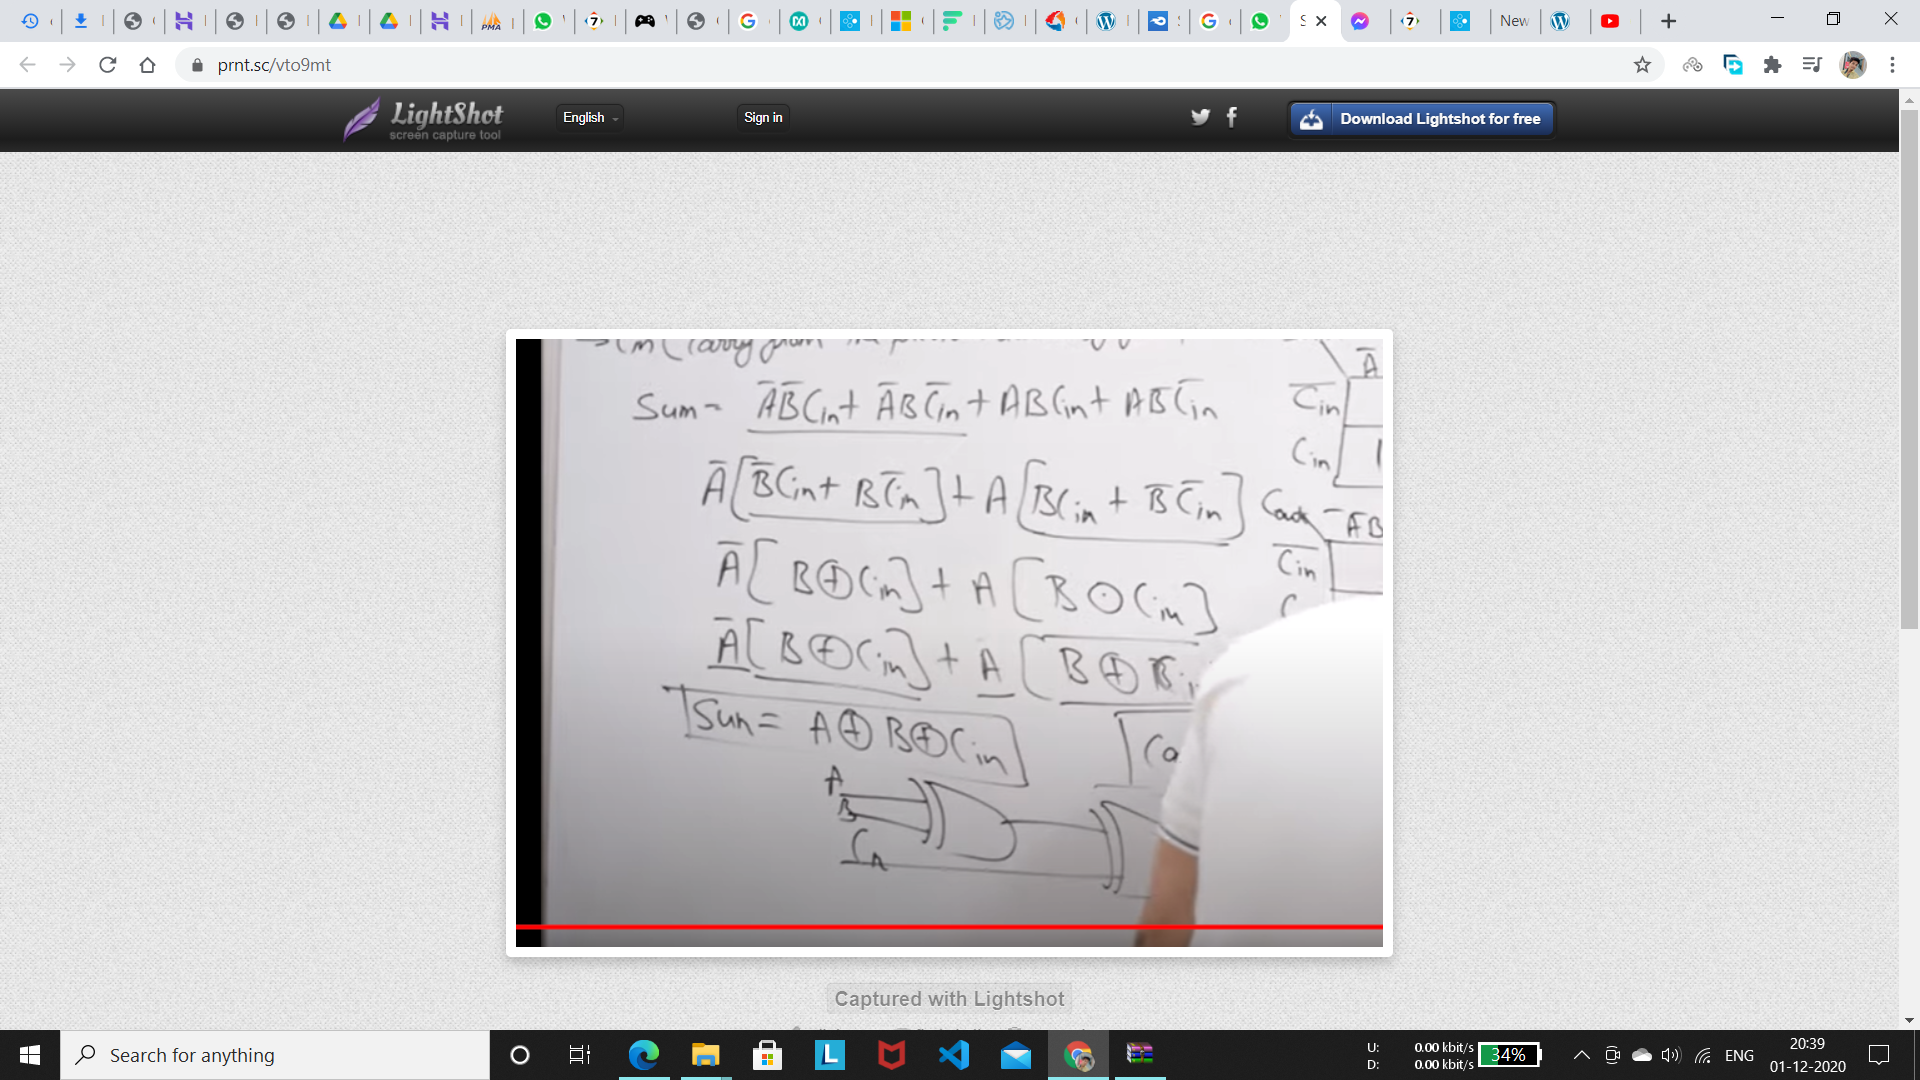 New
prnt.sc/vto9mt
LightShot
screen capture tool
English
Sign in
Download Lightshot for free
Sum = A̅B̅Cin + A̅BC̅in + ABCin + AB̅C̅in
A̅[B̅Cin + BC̅in] + A[BCin + B̅C̅in]
A̅[B⊕Cin] + A[B⊙Cin]
A̅[B⊕Cin] + A
Sum = A⊕B⊕Cin
A
B
Cin
A̅
C̅in
Cin
Cout
A̅B
C̅in
Captured with Lightshot
Search for anything
U: 0.00 kbit/s
D: 0.00 kbit/s
34%
ENG
20:39
01-12-2020